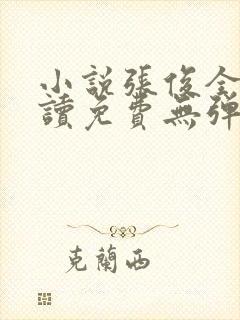 小說張俊全
讀免費無彈
克蘭西